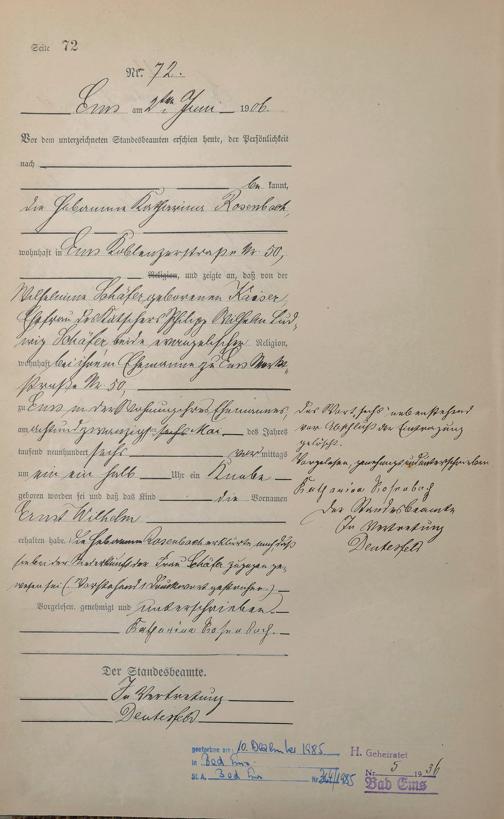 Seite 72
Nr. 72.
Ems am 2ten Juni 1906.
Vor dem unterzeichneten Standesbeamten erschien heute, der Persönlichkeit
nach
be kannt,
die Hebamme Katharina Rosenbach,
wohnhaft in Ems Koblenzerstraße Nr. 50,
Religion, und zeigte an, daß von der
Wilhelmine Schäfer geborenen Kaiser,
Ehefrau des Kutschers Philipp Wilhelm Lud-
wig Schäfer beide evangelischer Religion,
wohnhaft bei ihrem Ehemanne zu Ems
straße Nr. 50,
zu Ems in der Wohnung ihres Ehemannes,
am achtundzwanzigsten sechs Mai des Jahres
tausend neunhundert sechs vor mittags
um ein ein halb Uhr ein Knabe
geboren worden sei und daß das Kind die Vornamen
Ernst Wilhelm
erhalten habe. Die Hebamme Rosenbach erklärte noch daß
sie bei der Niederkunft der Frau Schäfer zugegen ge-
wesen sei (Vorstehend 1 Druckwort gestrichen.)
Vorgelesen, genehmigt und unterschrieben.
Katharina Rosenbach.
Der Standesbeamte.
In Vertretung
Das Wort "sechs" nebenstehend
vor Abschluß der Eintragung
gelöscht.
Vorgelesen, genehmigt und unterschrieben
Katharina Rosenbach
Der Standesbeamte
In Vertretung
gestorben am: 10. Dezember 1985
in Bad Ems
St. A. Bad Ems Nr. /1985
H. Geheiratet
Nr. 5 1936
Bad Ems